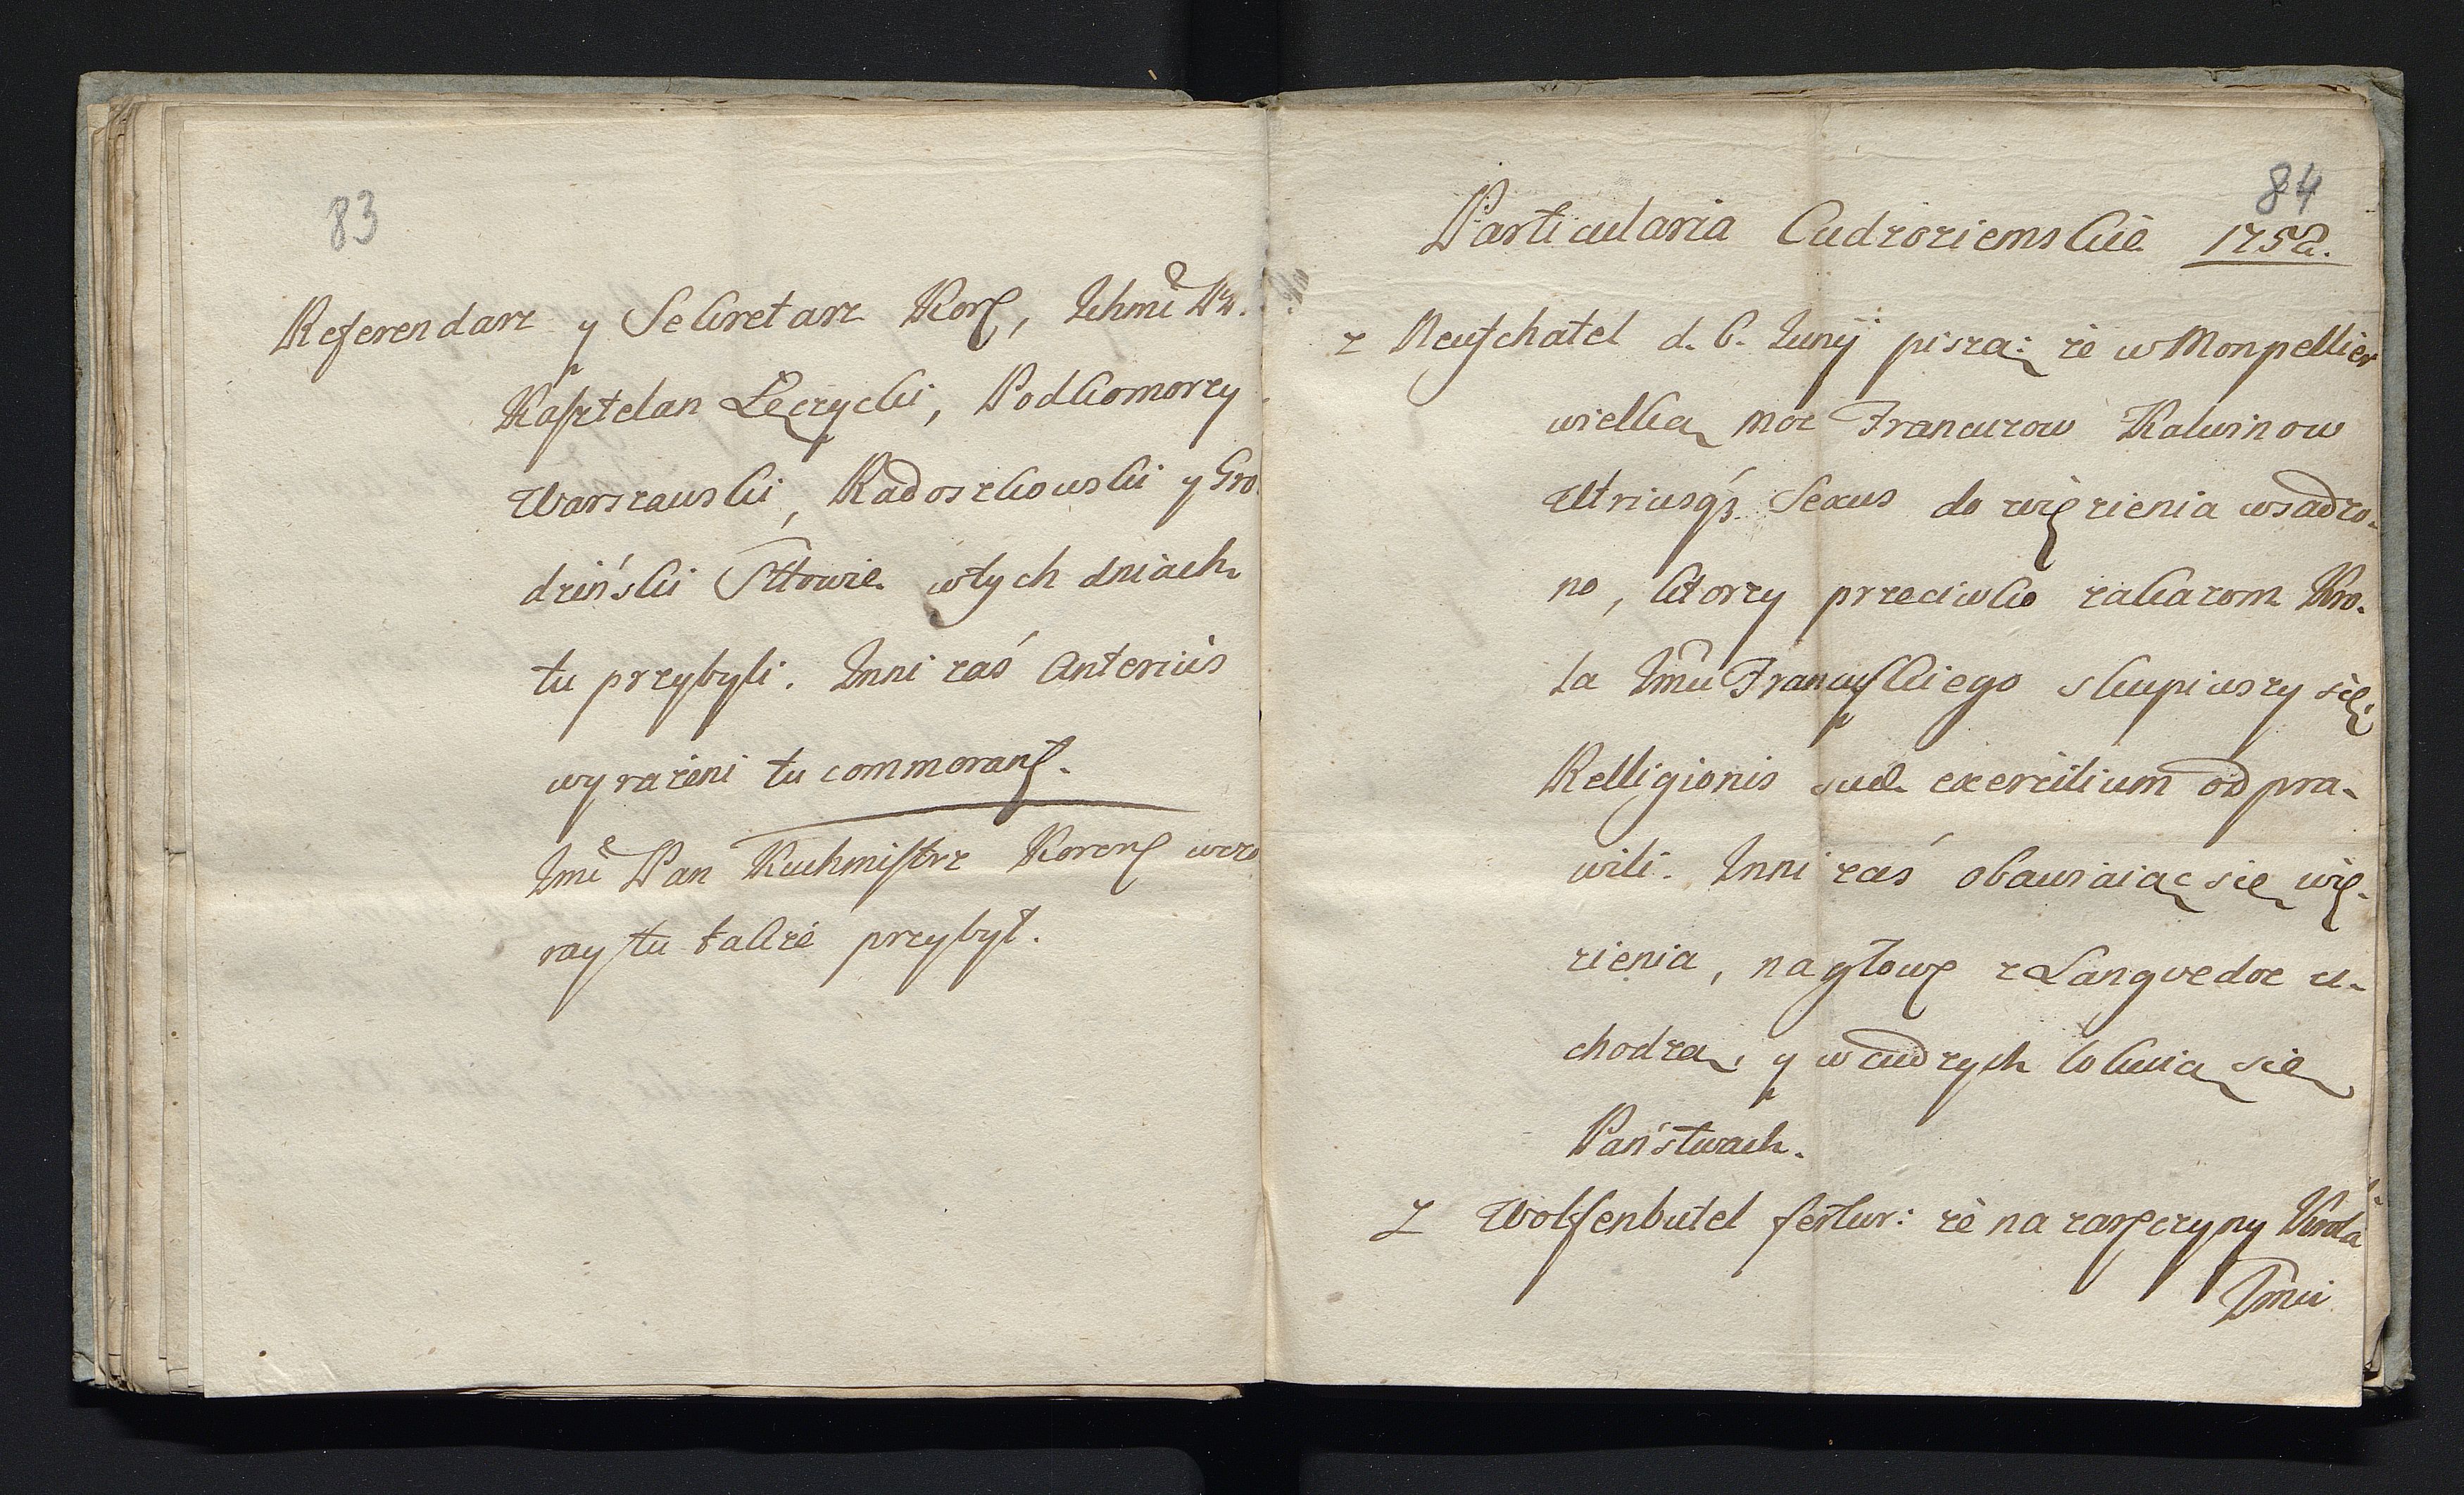 83
Referendarz y Sekretarz Kor, Ichmć PP.
Kasztelan Łęczycki, Podkomorzy
Warszawski, Radoszkowski y Gro
dziński Sttowie w tych dniach
tu przybyli. Inni zaś Anteriùs
wyrażeni tu commorant.
Imć Pan Kuchmistrz Koronẽ wczo
ray tu także przybył.
84
Particularia Cudzoziemskie 1752.
z Neufchatel d. 6. Iunij piszą: że w Monpellier
wielką moc Francuzow Kalwinow
Utriusqs Sexus do więzienia wsadzo-
no, ktorzy przeciwko zakazom Kro-
la Imci Francuskiego skupiwszy się,
Relligionis suae exercitium odpra-
wili. Inni zaś obawiaiąc się wię-
zienia, na głowę z Langvedoc u-
chodzą, y w cudzych lokuią się
Państwach.
Z Wolfenbutel fertur: że na zaręczyny Krola
Imci